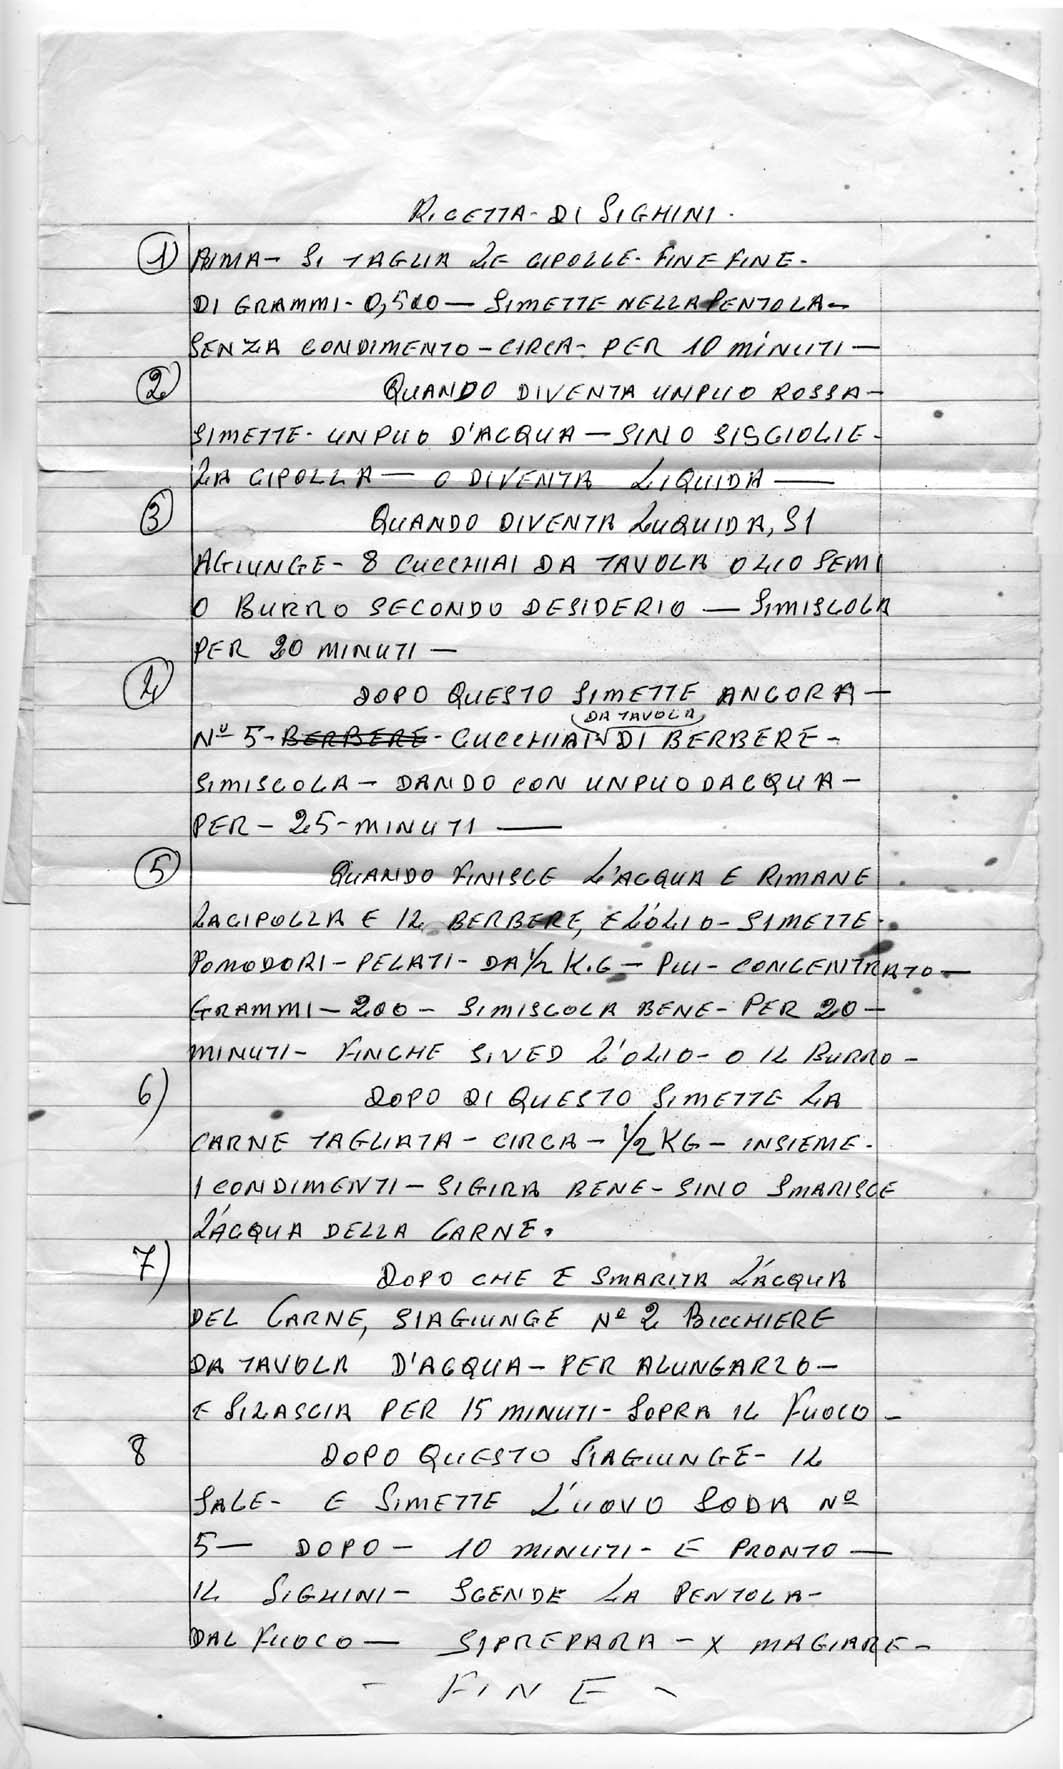 RICETTA - DI SIGHINI.
1 PRIMA - SI TAGLIA LE CIPOLLE - FINE FINE -
DI GRAMMI - 0,500 — SIMETTE NELLA PENTOLA —
SENZA CONDIMENTO - CIRCA - PER 10 MINUTI —
2 QUANDO DIVENTA UNPUO ROSSA -
SIMETTE - UNPUO D'ACQUA — SINO SISCIOLIE -
LA CIPOLLA — O DIVENTA LIQUIDA —
3 QUANDO DIVENTA LUQUIDA, SI
AGIUNGE - 8 CUCCHIAI DA TAVOLA OLIO SEMI
O BURRO SECONDO DESIDERIO — SIMISCOLA
PER 20 MINUTI —
4 DOPO QUESTO SIMETTE ANCORA —
(DA TAVOLA)
Nº 5 - BERBERE - CUCCHIAI DI BERBERE -
SIMISCOLA - DANDO CON UNPUO DACQUA -
PER - 25 - MINUTI —
5 QUANDO FINISCE L'ACQUA E RIMANE
LACIPOLLA E IL BERBERE, E L'OLIO - SIMETTE -
POMODORI - PELATI - DA 1/2 K.G - PIU - CONCENTRATO —
GRAMMI - 200 - SIMISCOLA BENE - PER 20 —
MINUTI - FINCHE SIVED L'OLIO - O IL BURRO -
6) DOPO DI QUESTO SIMETTE LA
CARNE TAGLIATA - CIRCA - 1/2 KG - INSIEME -
I CONDIMENTI - SIGIRA BENE - SINO SMARISCE
L'ACQUA DELLA CARNE.
7) DOPO CHE E SMARITA L'ACQUA
DEL CARNE, SIAGIUNGE Nº 2 BICCHIERE
DA TAVOLA D'ACQUA - PER ALUNGARLO -
E SILASCIA PER 15 MINUTI - SOPRA IL FUOCO -
8 DOPO QUESTO SIAGIUNGE - IL
SALE - E SIMETTE L'UOVO SODA Nº
5 — DOPO - 10 MINUTI - E PRONTO —
IL SIGHINI - SCENDE LA PENTOLA -
DAL FUOCO — SIPREPARA - X MAGIARE -
- FINE -